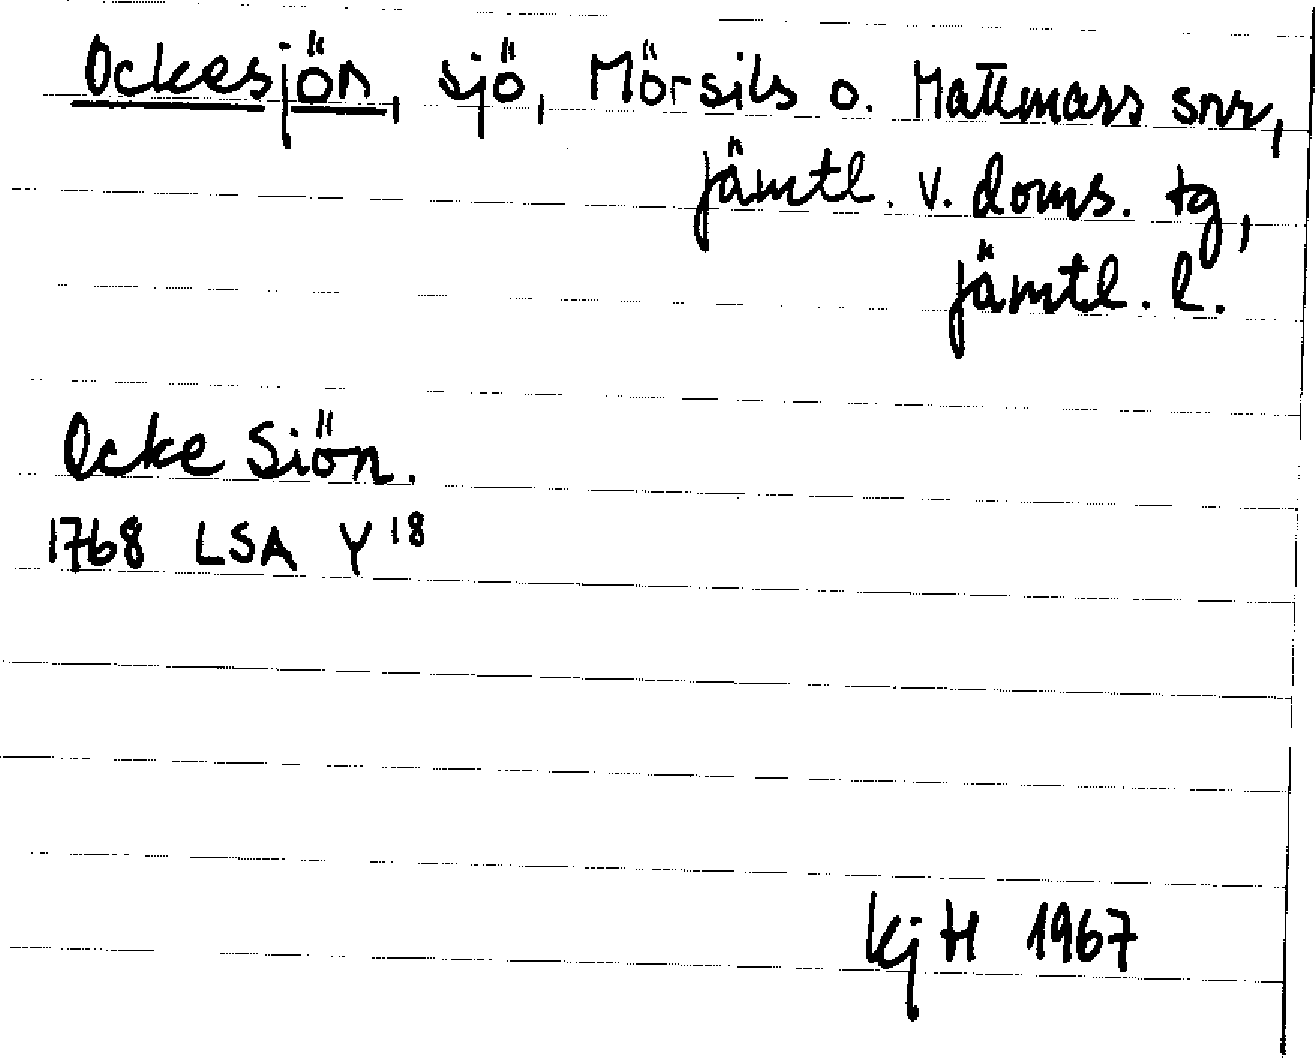 Ockesjön, sjö, Mörsils o. Mattmars snr,
Jämtl. v. doms. tg,
Jämtl. l.
Ocke Siön.
1768 LSA Y 18
KjH 1967